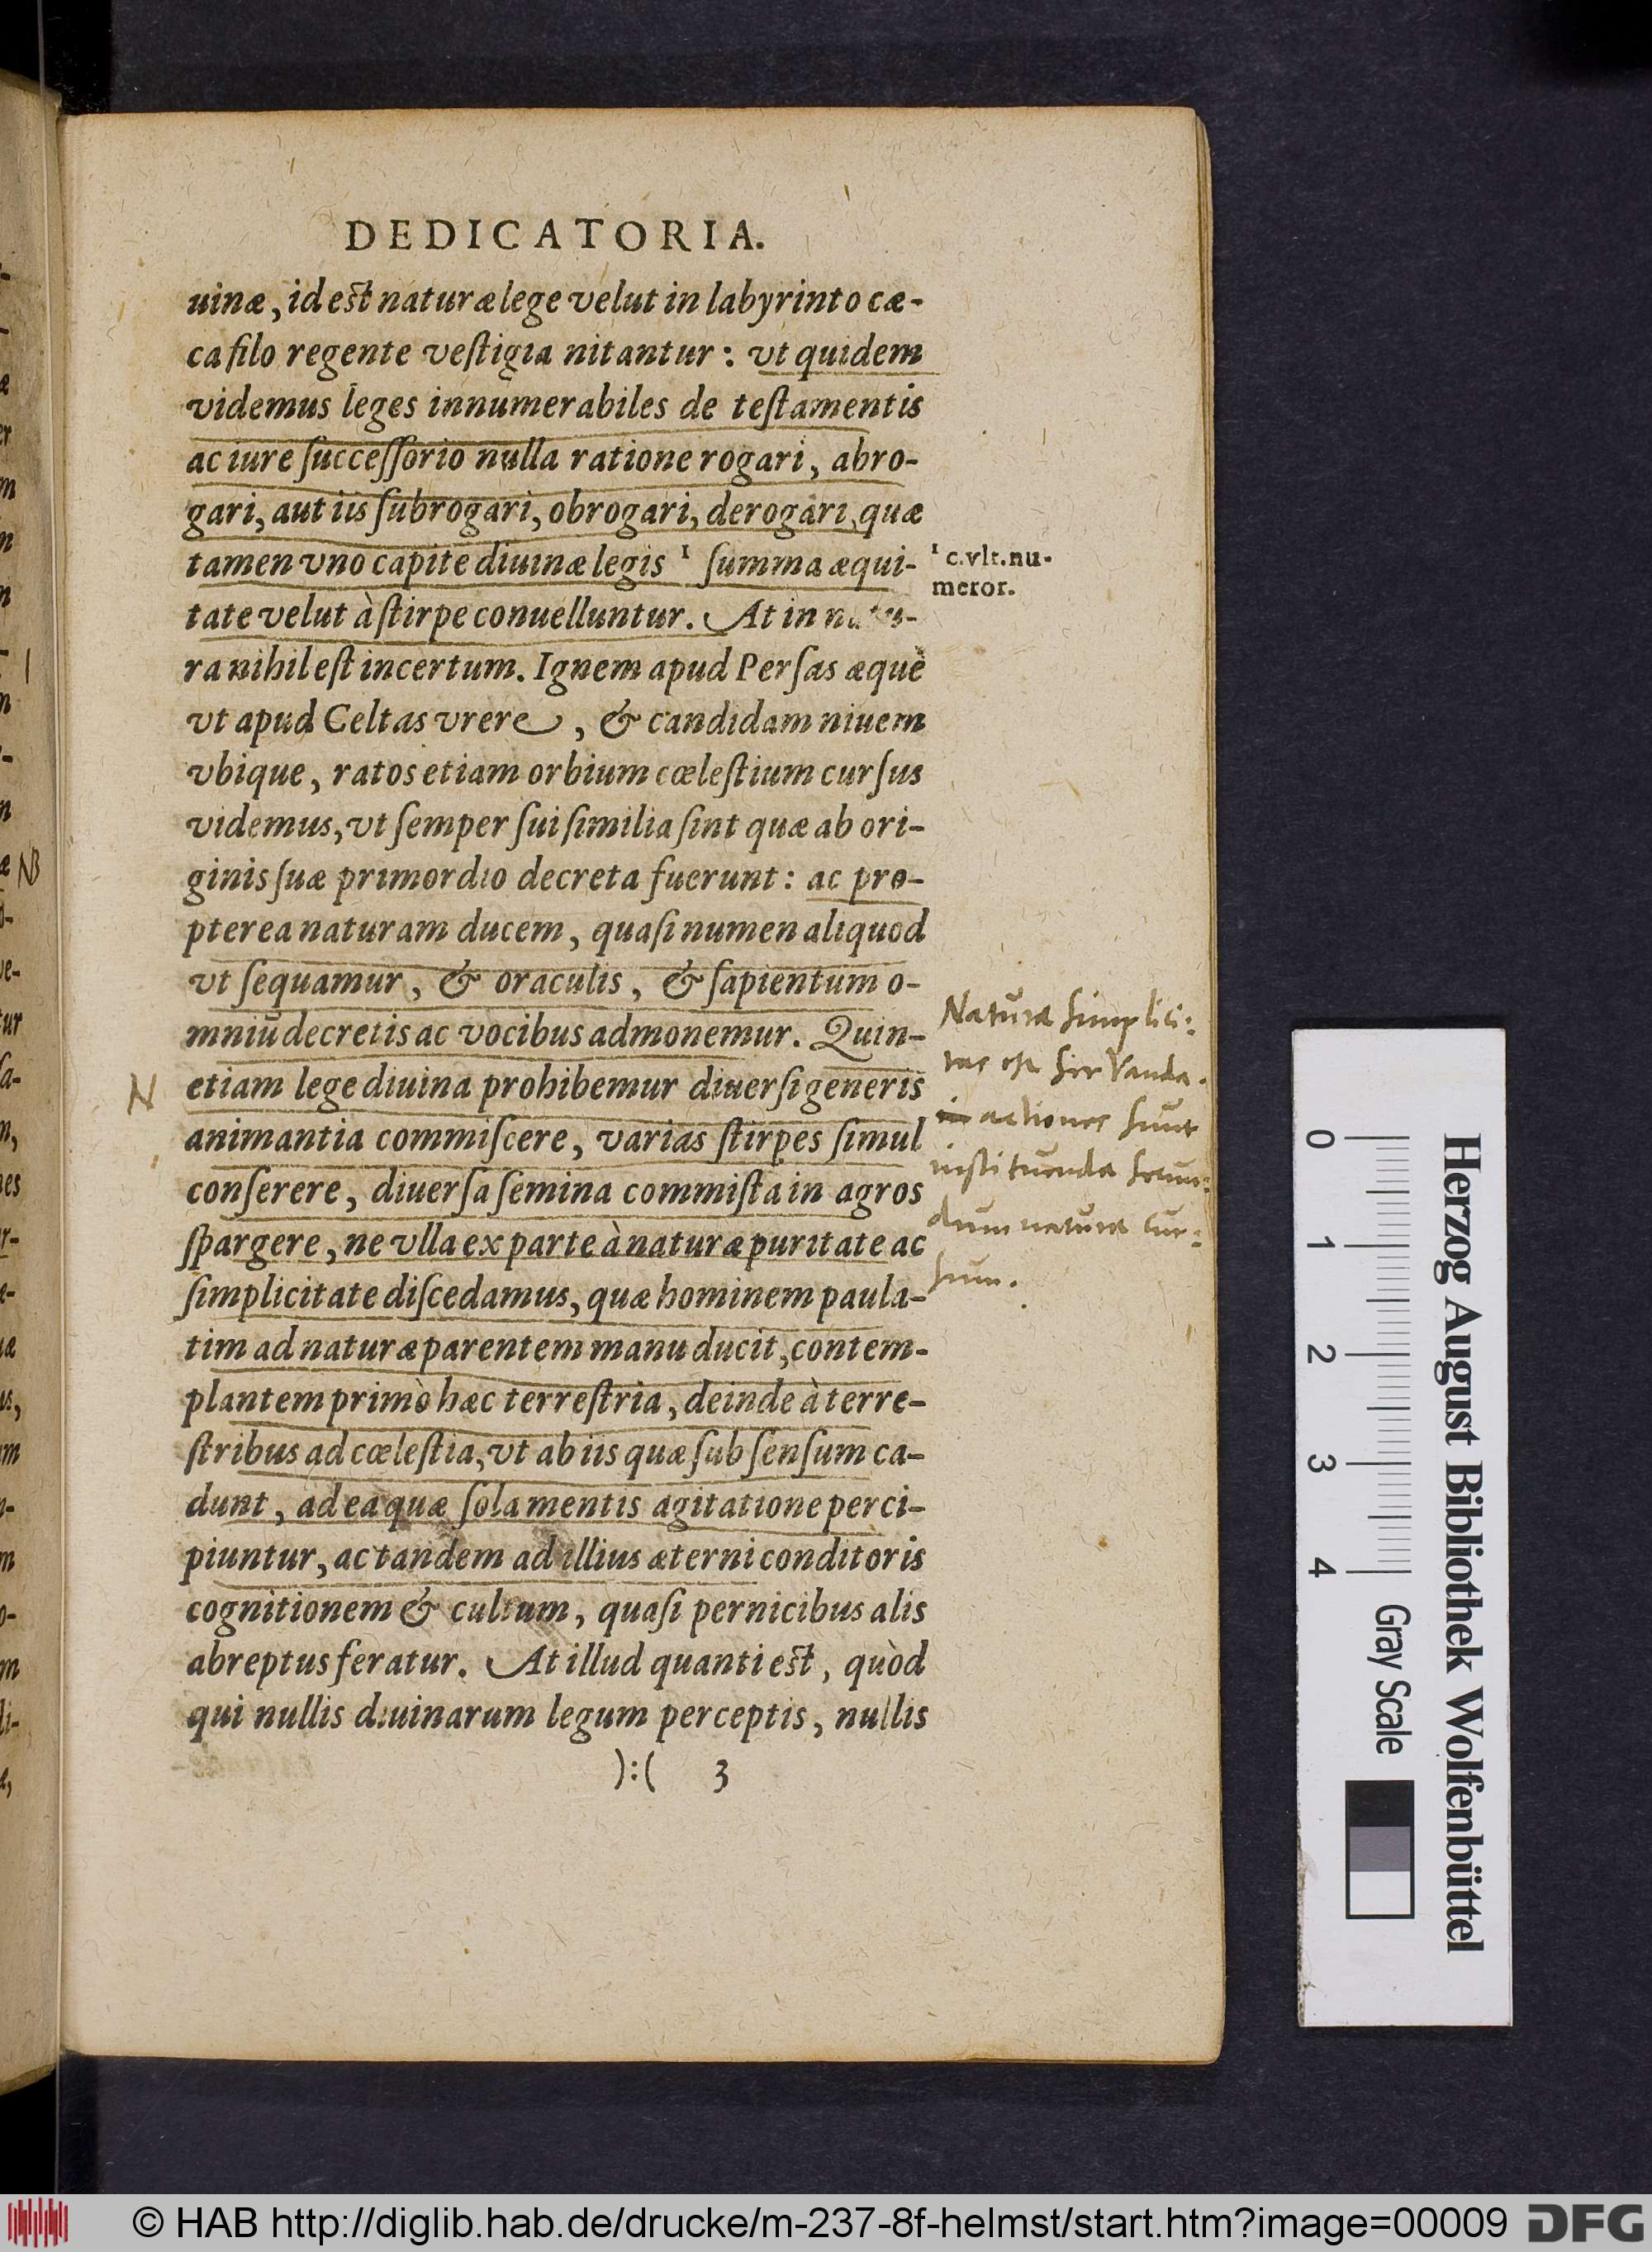 DEDICATORIA.
uinæ, id est naturæ lege velut in labyrinto cæ-
ca filo regente veſtigia nitantur: vt quidem
videmus leges innumerabiles de teſtamentis
ac iure ſucceſſorio nulla ratione rogari, abro-
gari, aut iis ſubrogari, obrogari, derogari, quæ
tamen vno capite diuinæ legis ¹ ſumma æqui-
tate velut à ſtirpe conuelluntur. At in natu-
ra nihil eſt incertum. Ignem apud Perſas æquè
vt apud Celtas vrere, & candidam niuem
vbique, ratos etiam orbium cœleſtium curſus
videmus, vt ſemper ſui ſimilia ſint quæ ab ori-
ginis ſuæ primordio decreta fuerunt: ac pro-
pterea naturam ducem, quaſi numen aliquod
vt ſequamur, & oraculis, & ſapientum o-
mniū decretis ac vocibus admonemur. Quin-
etiam lege diuina prohibemur diuerſi generis
animantia commiſcere, varias ſtirpes ſimul
conſerere, diuerſa ſemina commiſta in agros
ſpargere, ne vlla ex parte à naturæ puritate ac
ſimplicitate diſcedamus, quæ hominem paula-
tim ad naturæ parentem manu ducit, contem-
plantem primò hæc terreſtria, deinde à terre-
ſtribus ad cœleſtia, vt ab iis quæ ſub ſenſum ca-
dunt, ad ea quæ ſola mentis agitatione perci-
piuntur, ac tandem ad illius æterni conditoris
cognitionem & cultum, quaſi pernicibus alis
abreptus feratur. At illud quanti est, quòd
qui nullis diuinarum legum perceptis, nullis
):( 3
¹ c.vlt.nu-
meror.
Natura simplici:
tas est servanda.
actiones sunt
instituenda secun:
dum natura cur:
sum.
N
NB
Herzog August Bibliothek Wolfenbüttel
0 1 2 3 4 Gray Scale
© HAB http://diglib.hab.de/drucke/m-237-8f-helmst/start.htm?image=00009
DFG